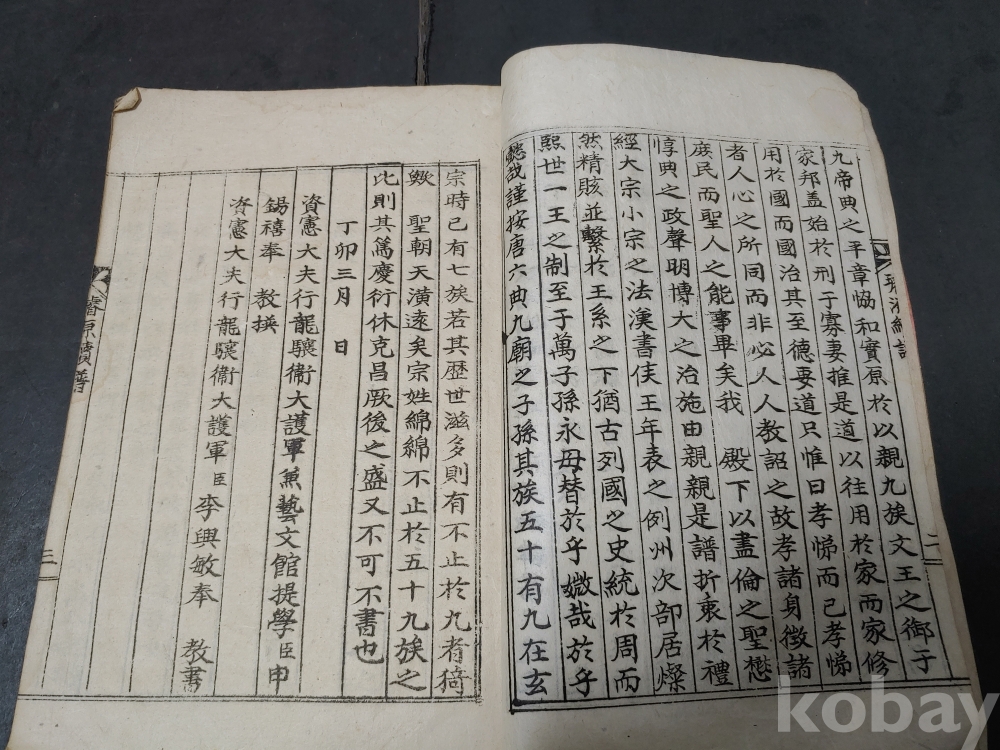 九帝典之平章恊和實原於以親九族文王之御于
家邦盖始於刑于寡妻推是道以徃用於家而家修
用於國而國治其至德要道只惟曰孝悌而已孝悌
者人心之所同而非必人人教詔之故孝諸身徵諸
庶民而聖人之能事畢矣我 殿下以盡倫之聖懋
惇典之政聲明博大之治施由親親是譜折衷於禮
經大宗小宗之法漢書矦王年表之例州次部居燦
然精賅並繫於王系之下猶古列國之史統於周而
熙世一王之制至于萬子孫永毋替於乎媺哉於乎
懿哉謹按唐六典九廟之子孫其族五十有九在玄
宗時已有七族若其歷世滋多則有不止於九者猗
歟 聖朝天潢遠矣宗姓綿綿不止於五十九族之
比則其萬慶衍休克昌厥後之盛又不可不書也
丁卯三月 日
資憲大夫行龍驤衛大護軍兼藝文館提學臣申
錫禧奉 教撰
資憲大夫行龍驤衛大護軍臣李興敏奉 教書
璿源續譜
二
三
kobay